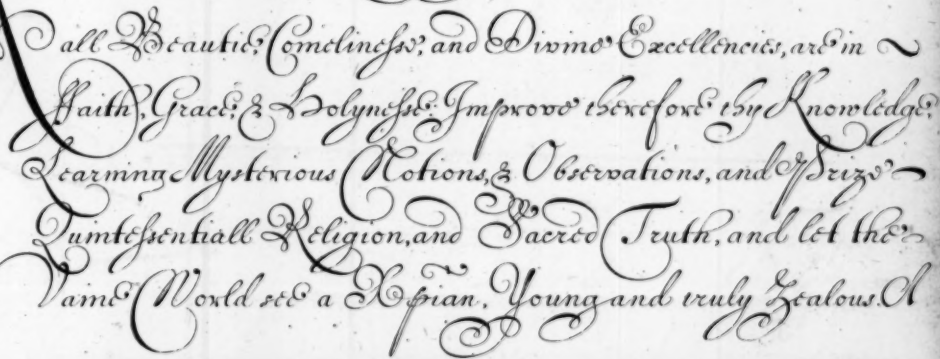 all Beautie, Comelinesse, and Divine Excellencies, are in
Ffaith, Grace, & Holynesse. Improve therefore thy Knowledge,
Learning Mysterious Notions, & Observations, and Prize
Quintessentiall Religion, and Sacred Truth, and let the
Vaine World see a Xpian, Young and truly Zealous. A